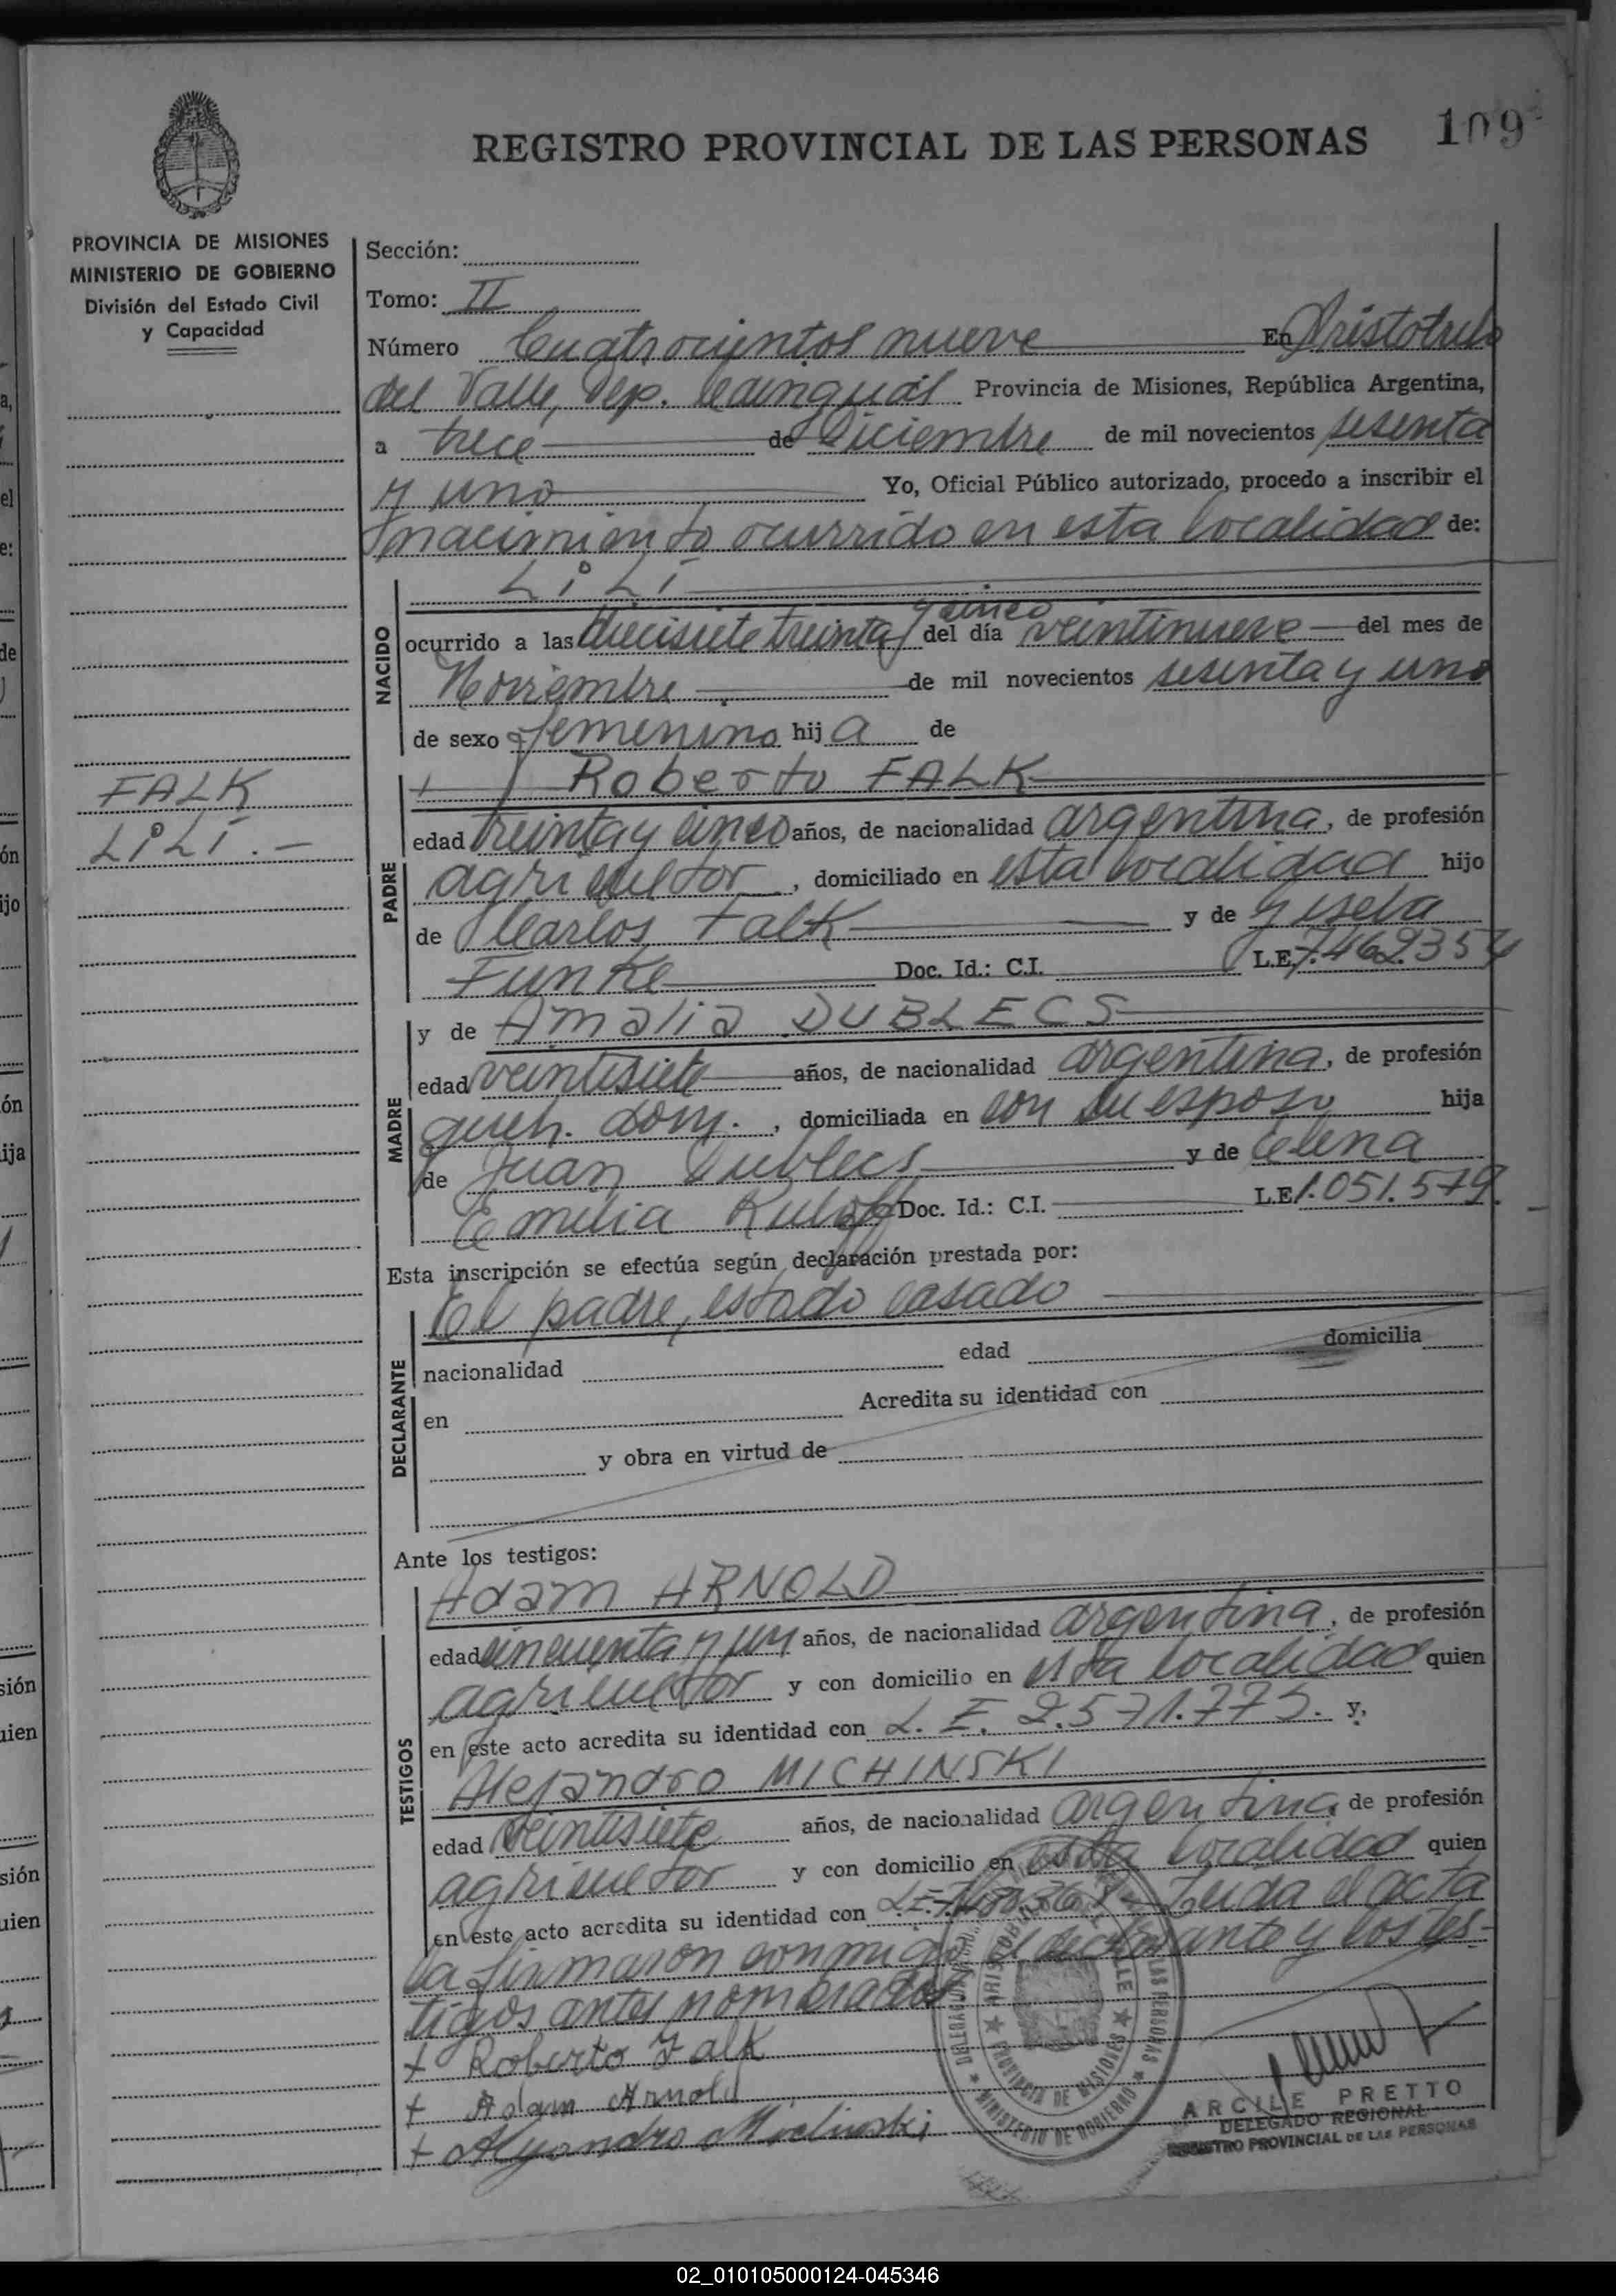 REGISTRO PROVINCIAL DE LAS PERSONAS 109
PROVINCIA DE MISIONES
MINISTERIO DE GOBIERNO
División del Estado Civil
y Capacidad
FALK
LiLí.-
Sección:
Tomo: II
Número Cuatrocientos nueve En Aristobulo
del Valle, Dep. Cainguás Provincia de Misiones, República Argentina,
a trece de Diciembre de mil novecientos sesenta
y uno Yo, Oficial Público autorizado, procedo a inscribir el
nacimiento ocurrido en esta localidad de:
LiLí
NACIDO
y cinco
ocurrido a las diecisiete treinta del día veintinueve del mes de
Noviembre de mil novecientos sesenta y uno
de sexo femenino hij a de
PADRE
Roberto FALK
edad treinta y cinco años, de nacionalidad argentina, de profesión
agricultor, domiciliado en esta localidad hijo
de Carlos Falk y de Gisela
Funke Doc. Id.: C.I. L.E. 7.462.354
MADRE
y de Amalia DUBLECS
edad veintisiete años, de nacionalidad argentina, de profesión
queh. dom., domiciliada en con su esposo hija
de Juan Dublecs y de Elena
Emilia Doc. Id.: C.I. L.E. 1.051.579.
Esta inscripción se efectúa según declaración prestada por:
DECLARANTE
El padre, estado casado
nacionalidad edad domicilia
en Acredita su identidad con
y obra en virtud de
Ante los testigos:
TESTIGOS
Adam ARNOLD
edad cincuenta y un años, de nacionalidad argentina, de profesión
agricultor y con domicilio en esta localidad quien
en este acto acredita su identidad con L. E. 2.571.775. y,
Alejandro MICHINSKI
edad veintisiete años, de nacionalidad argentina de profesión
agricultor y con domicilio en esta localidad quien
en este acto acredita su identidad con L.E. Leida el acta
la firmaron conmigo el declarante y los tes-
tigos antes nombrados
+ Roberto Falk
+ Adam Arnold
+ Alejandro Michinski
PROVINCIA DE MISIONES
MINISTERIO DE GOBIERNO
ARCILE PRETTO
DELEGADO REGIONAL
REGISTRO PROVINCIAL DE LAS PERSONAS
02_010105000124-045346